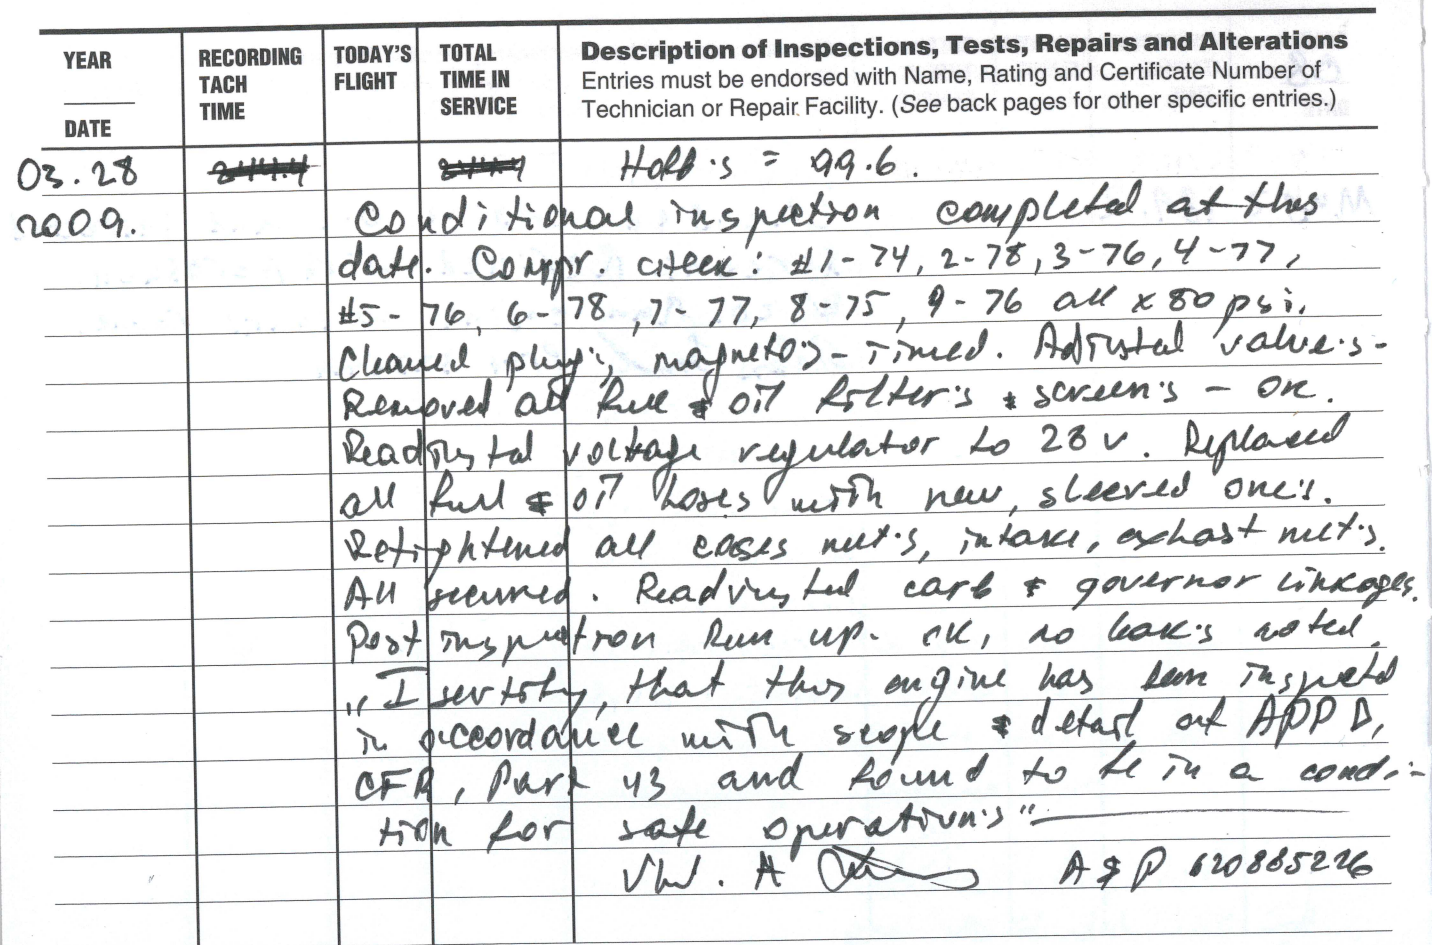 YEAR
DATE
RECORDING
TACH
TIME
TODAY'S
FLIGHT
TOTAL
TIME IN
SERVICE
Description of Inspections, Tests, Repairs and Alterations
Entries must be endorsed with Name, Rating and Certificate Number of
Technician or Repair Facility. (See back pages for other specific entries.)
03.28 Hobb's = 99.6.
2009. Conditional inspection completed at this
date. Compr. check: #1-74, 2-78, 3-76, 4-77,
#5-76, 6-78, 7-77, 8-75, 9-76 all x 80 psi.
Cleaned plug's, magneto's - Timed. Adjusted valve's-
Removed all fuel & oil filter's & screen's - OK.
Readjusted voltage regulator to 28 v. Replaced
all fuel & oil hoses with new, sleeved one's.
Retightened all cases nut's, intake, exhast nut's.
All secured. Readjusted carb & governor linkages.
Post inspection Run up. ok, no leak's noted.
"I sertify, that this engine has been inspected
in accordance with scope & detail of APP D,
CFR, Part 43 and found to be in a condi-
tion for safe operation's"
A A&P 620885226